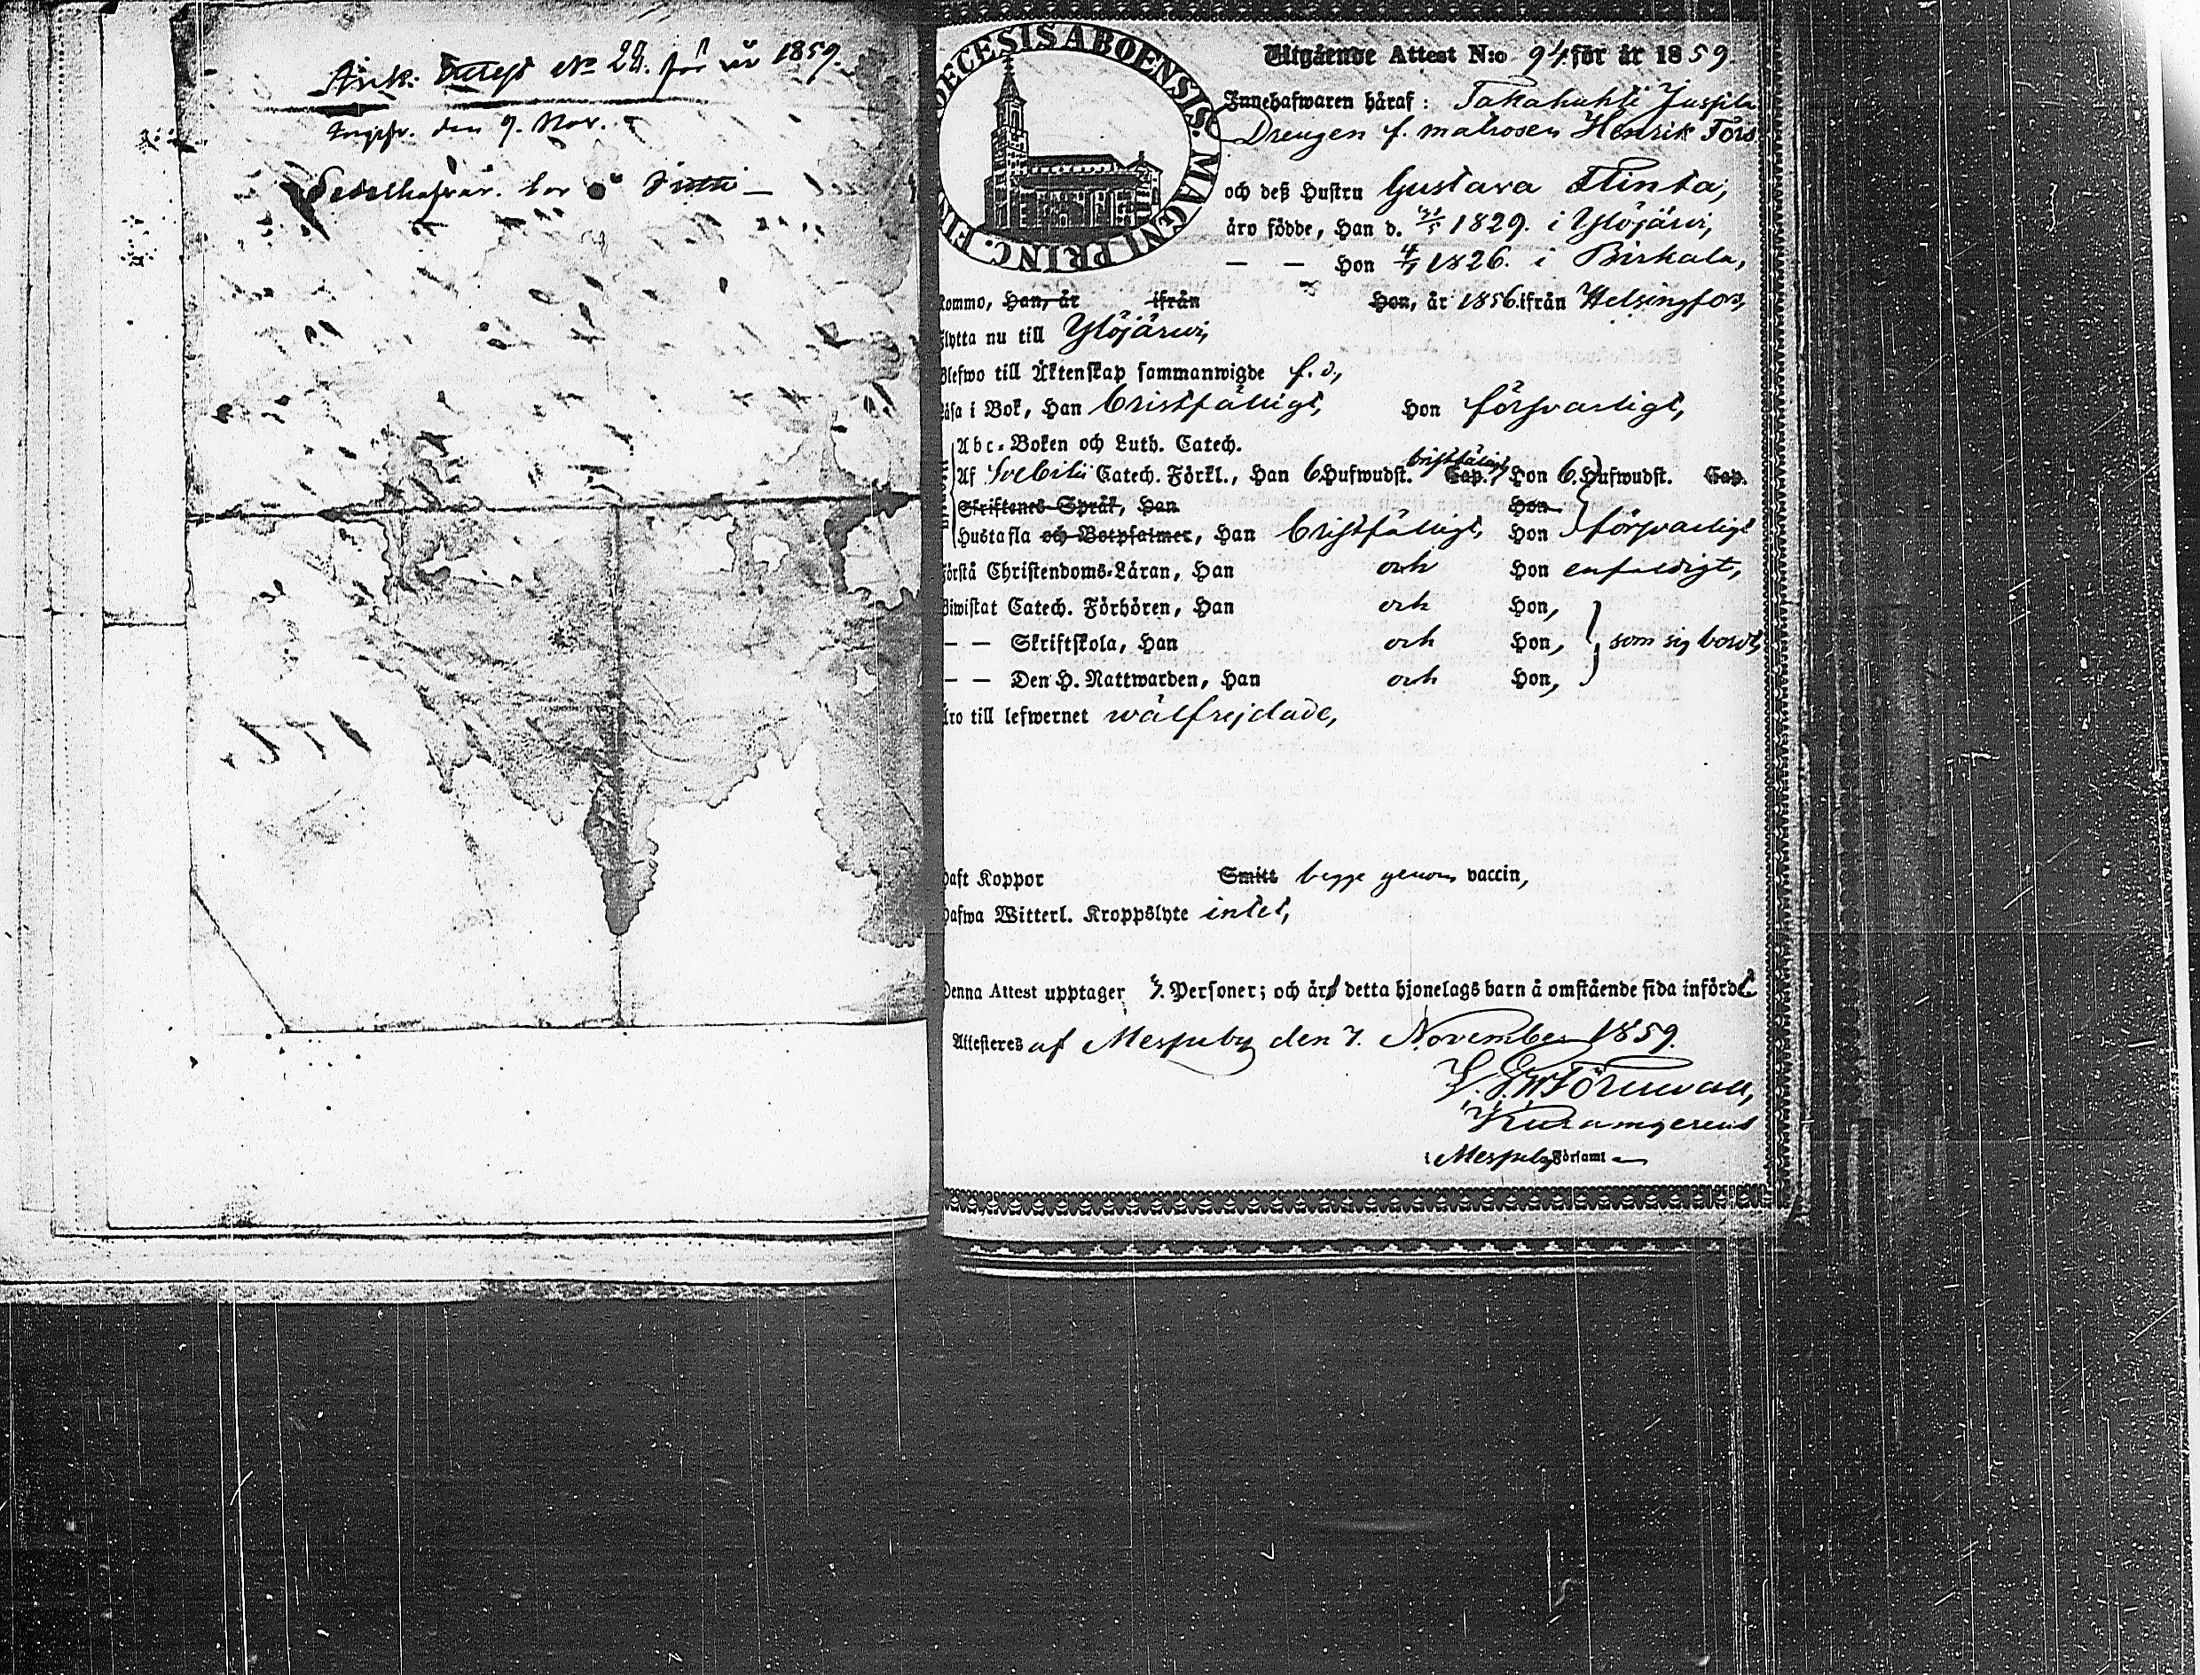 Ank. Attest No 22. för år 1859.
den 9. Nov.
Sedelhafvar. bor
DECESIS ABOENSIS. MAGNI PRINC. FIN
Utgående Attest N:o 94 för år 1859
Innehafwaren häraf: Takahuhti Juspila
Drengen f. matrosen Henrik Fors
och deß Hustru Gustava Flinta,
äro födde, Han d. 1829. i Ylöjärvi,
— — Hon 1826. i Birkala,
kommo, Han, år ifrån Hon, år 1856. ifrån Helsingfors,
flytta nu till Ylöjärvi,
Blefwo till Äktenskap sammanwigde f. d.,
läsa i Bok, Han bristfälligt, Hon försvarligt,
Abc-Boken och Luth. Catech.
Af Svebilii Catech. Förkl., Han 6 Hufwudst. bristfälligt Cap., Hon 6. Hufwudst. Cap.
Skriftenes Språk, Han Hon
Hustafla och Botpsalmer, Han bristfälligt, Hon försvarligt
förstå Christendoms-Läran, Han och Hon enfaldigt,
Biwistat Catech. Förhören, Han och Hon,
— — Skriftskola, Han och Hon, som sig bordt,
— — Den H. Nattwarden, Han och Hon,
äro till lefwernet wälfrejdade,
haft Koppor Smitt begge genom vaccin,
hafwa Witterl. Kroppslyte intet,
Denna Attest upptager Personer; och äro detta hjonelags barn å omstående sida införde
Attesteras af Messuby den 7. November 1859.
Törnwall,
i Messuby Församl.